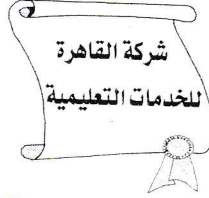 شركة القاهرة
للخدمات التعليمية